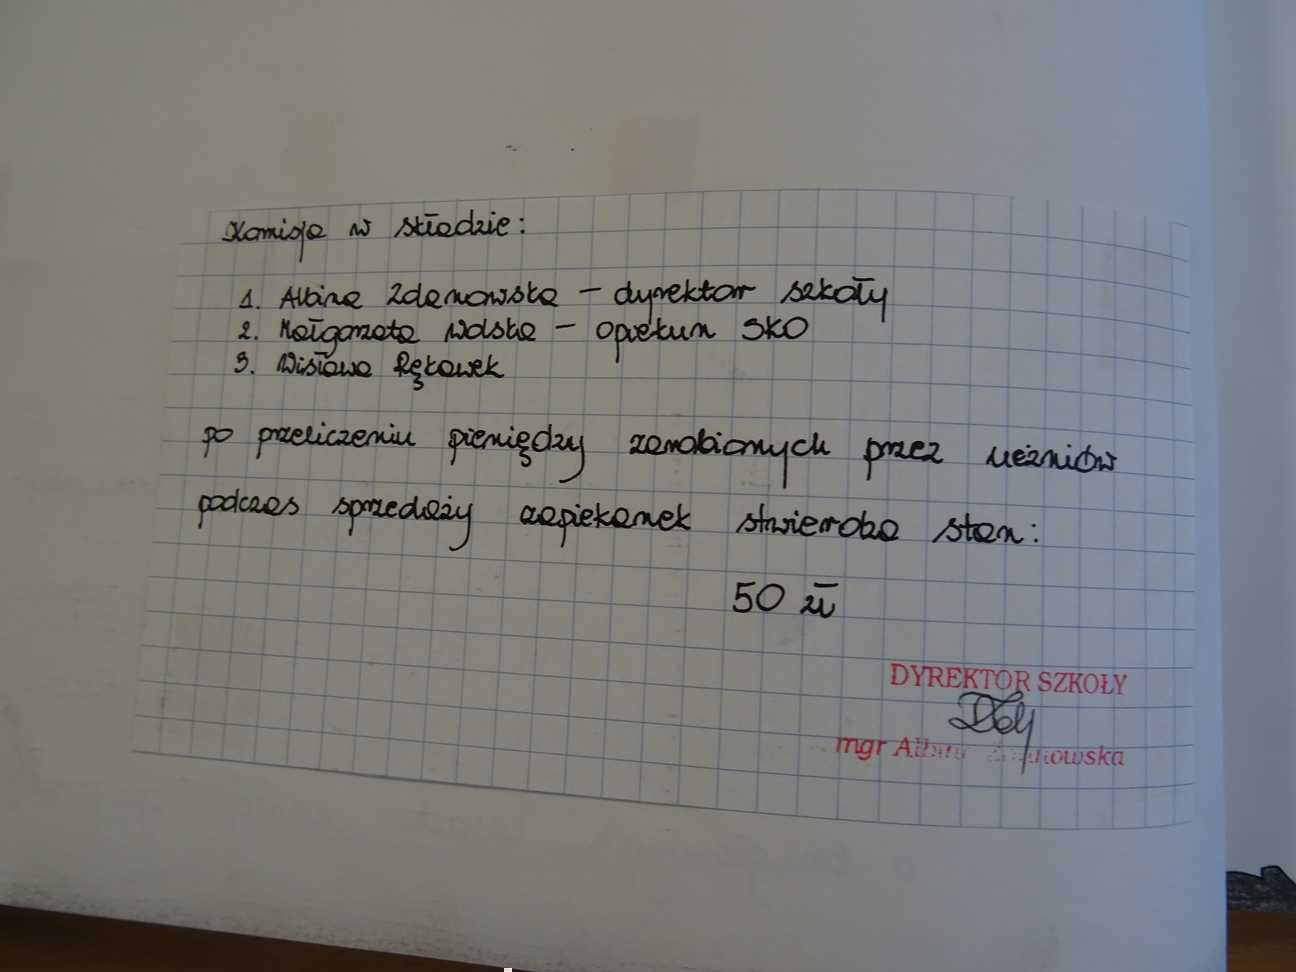 Komisja w składzie:
1. Albina Zdanowska - dyrektor szkoły
2. Małgorzata Wolska - opiekun SKO
3. Wisława Rękawek
po przeliczeniu pieniędzy zarobionych przez uczniów
podczas sprzedaży zapiekanek stwierdza stan:
50 zł
DYREKTOR SZKOŁY
mgr Albina